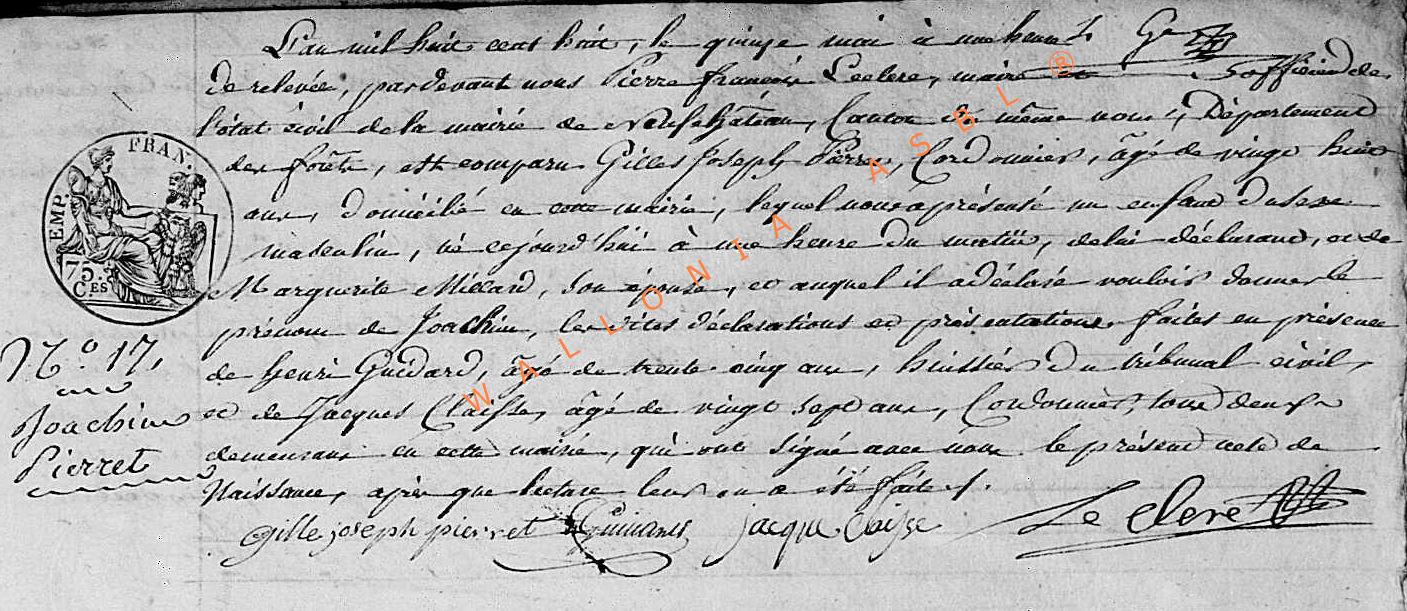 L'an mil huit cent huit, le quinze mai à une heure
de relevée, pardevant nous Pierre françois Leclere, maire officier de
l'état civil de la mairie de Neufchâteau, Canton du même nom, Département
des forêts, est comparu Gilles Joseph Pierret, Cordonnier, âgé de vingt huit
ans, domicilié en cette mairie, lequel nous a présenté un enfant du sexe
masculin, né cejourd'hui à une heure du matin, de lui déclarant, et de
Marguerite Millard, son épouse, et auquel il a déclaré vouloir donner le
prénom de Joachim, les dites déclarations et présentations faites en présence
de henri Guidard, âgé de trente cinq ans, huissier du tribunal civil,
et de Jacques Claisse, âgé de vingt sept ans, Cordonnier, tous deux
demeurans en cette mairie, qui ont signé avec nous le présent acte de
Naissance, après que lecture leur en a été faite.
gille joseph pierret jacque Claisse Le clere
FRAN.
EMP.
75
C.ES
N.o 17,
Joachim
Pierret
WALLONIA ASBL ®